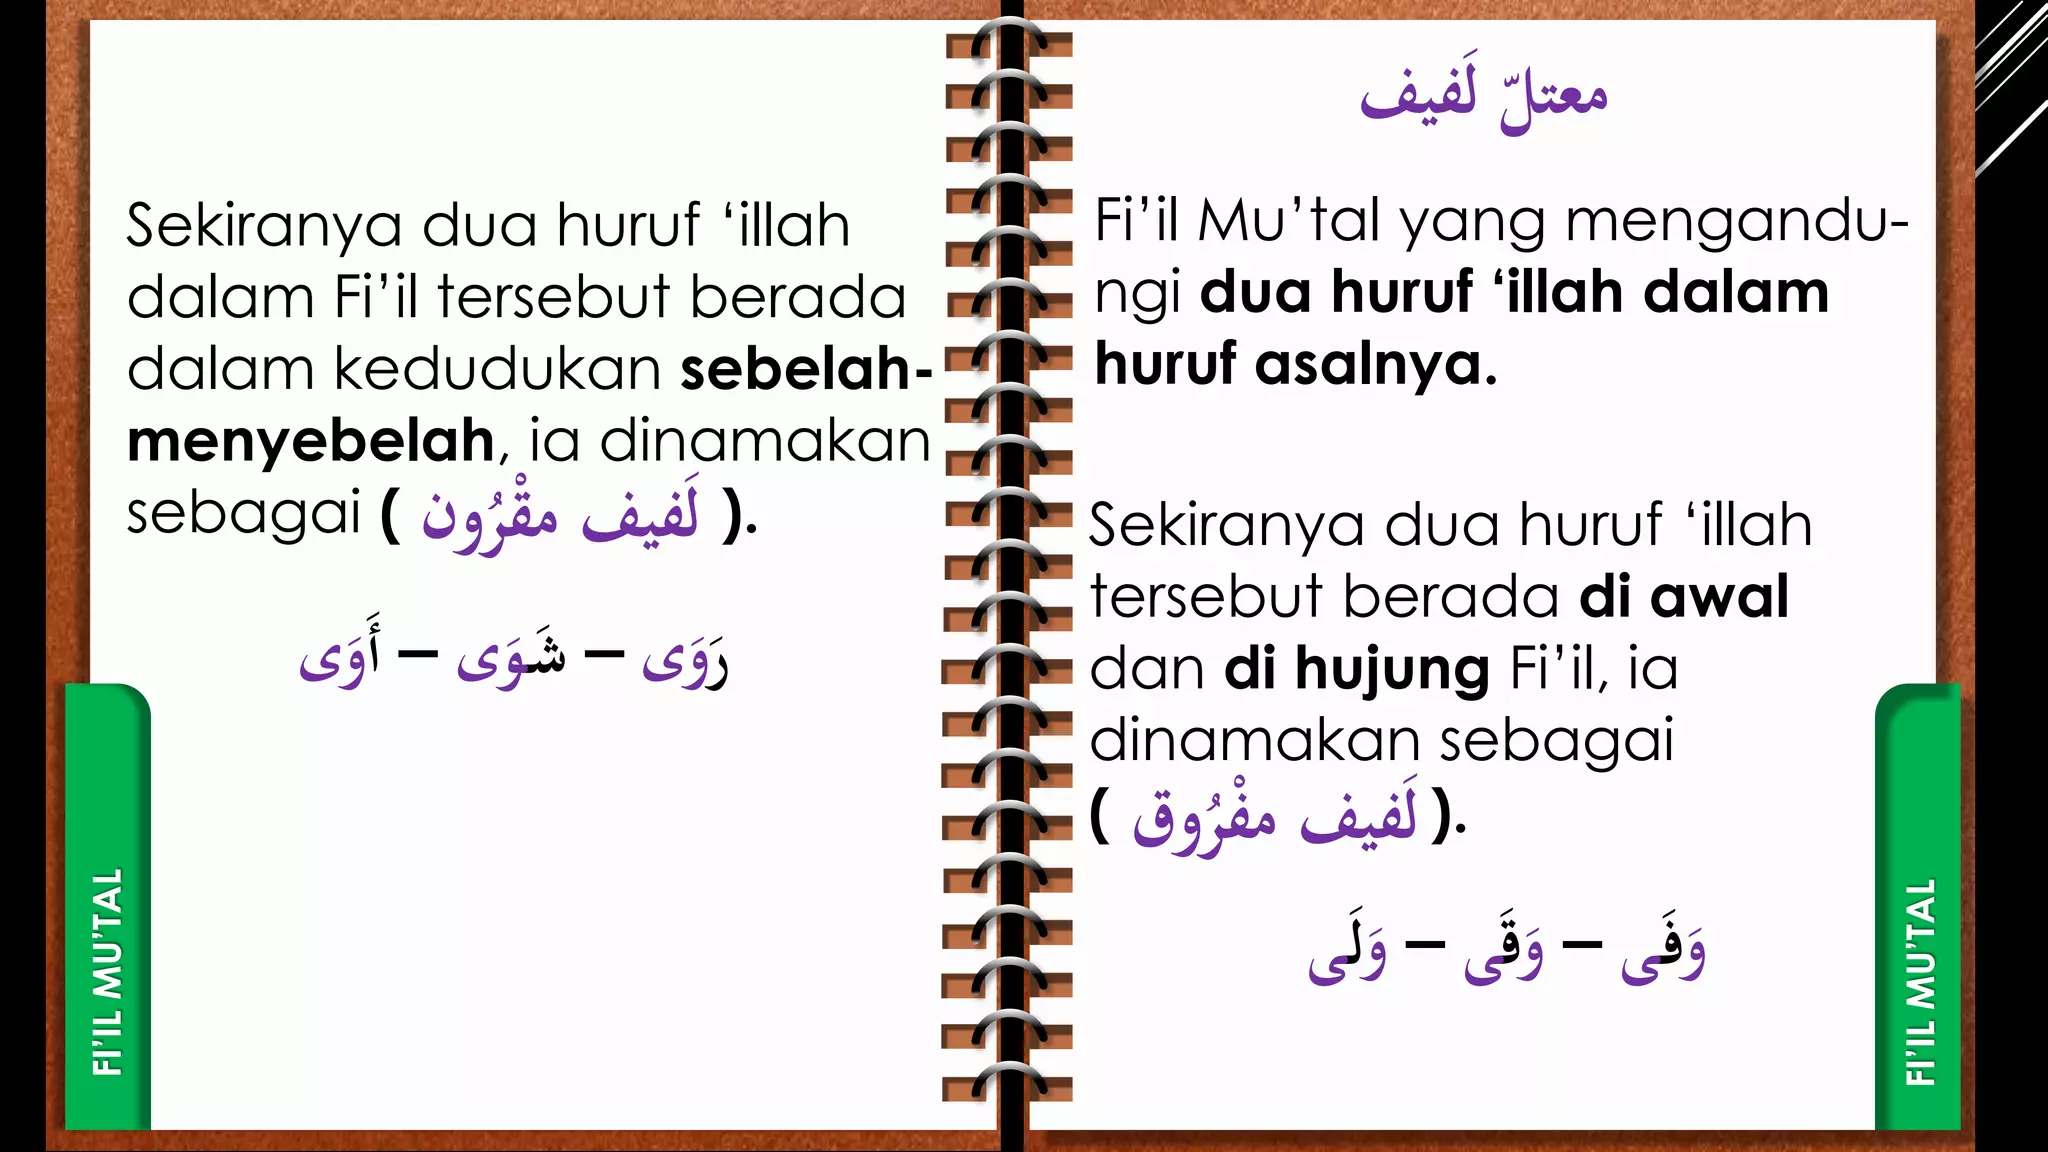 معتلّ لَفيف
Fi’il Mu’tal yang mengandu-
ngi dua huruf ‘illah dalam
huruf asalnya.
Sekiranya dua huruf ‘illah
tersebut berada di awal
dan di hujung Fi’il, ia
dinamakan sebagai
( لَفيف مفْرُوق ).
وَفَى – وَقَى – وَلَى
FI’IL MU’TAL
Sekiranya dua huruf ‘illah
dalam Fi’il tersebut berada
dalam kedudukan sebelah-
menyebelah, ia dinamakan
sebagai ( لَفيف مقْرُون ).
رَوَى – شَوَى – أَوَى
FI’IL MU’TAL